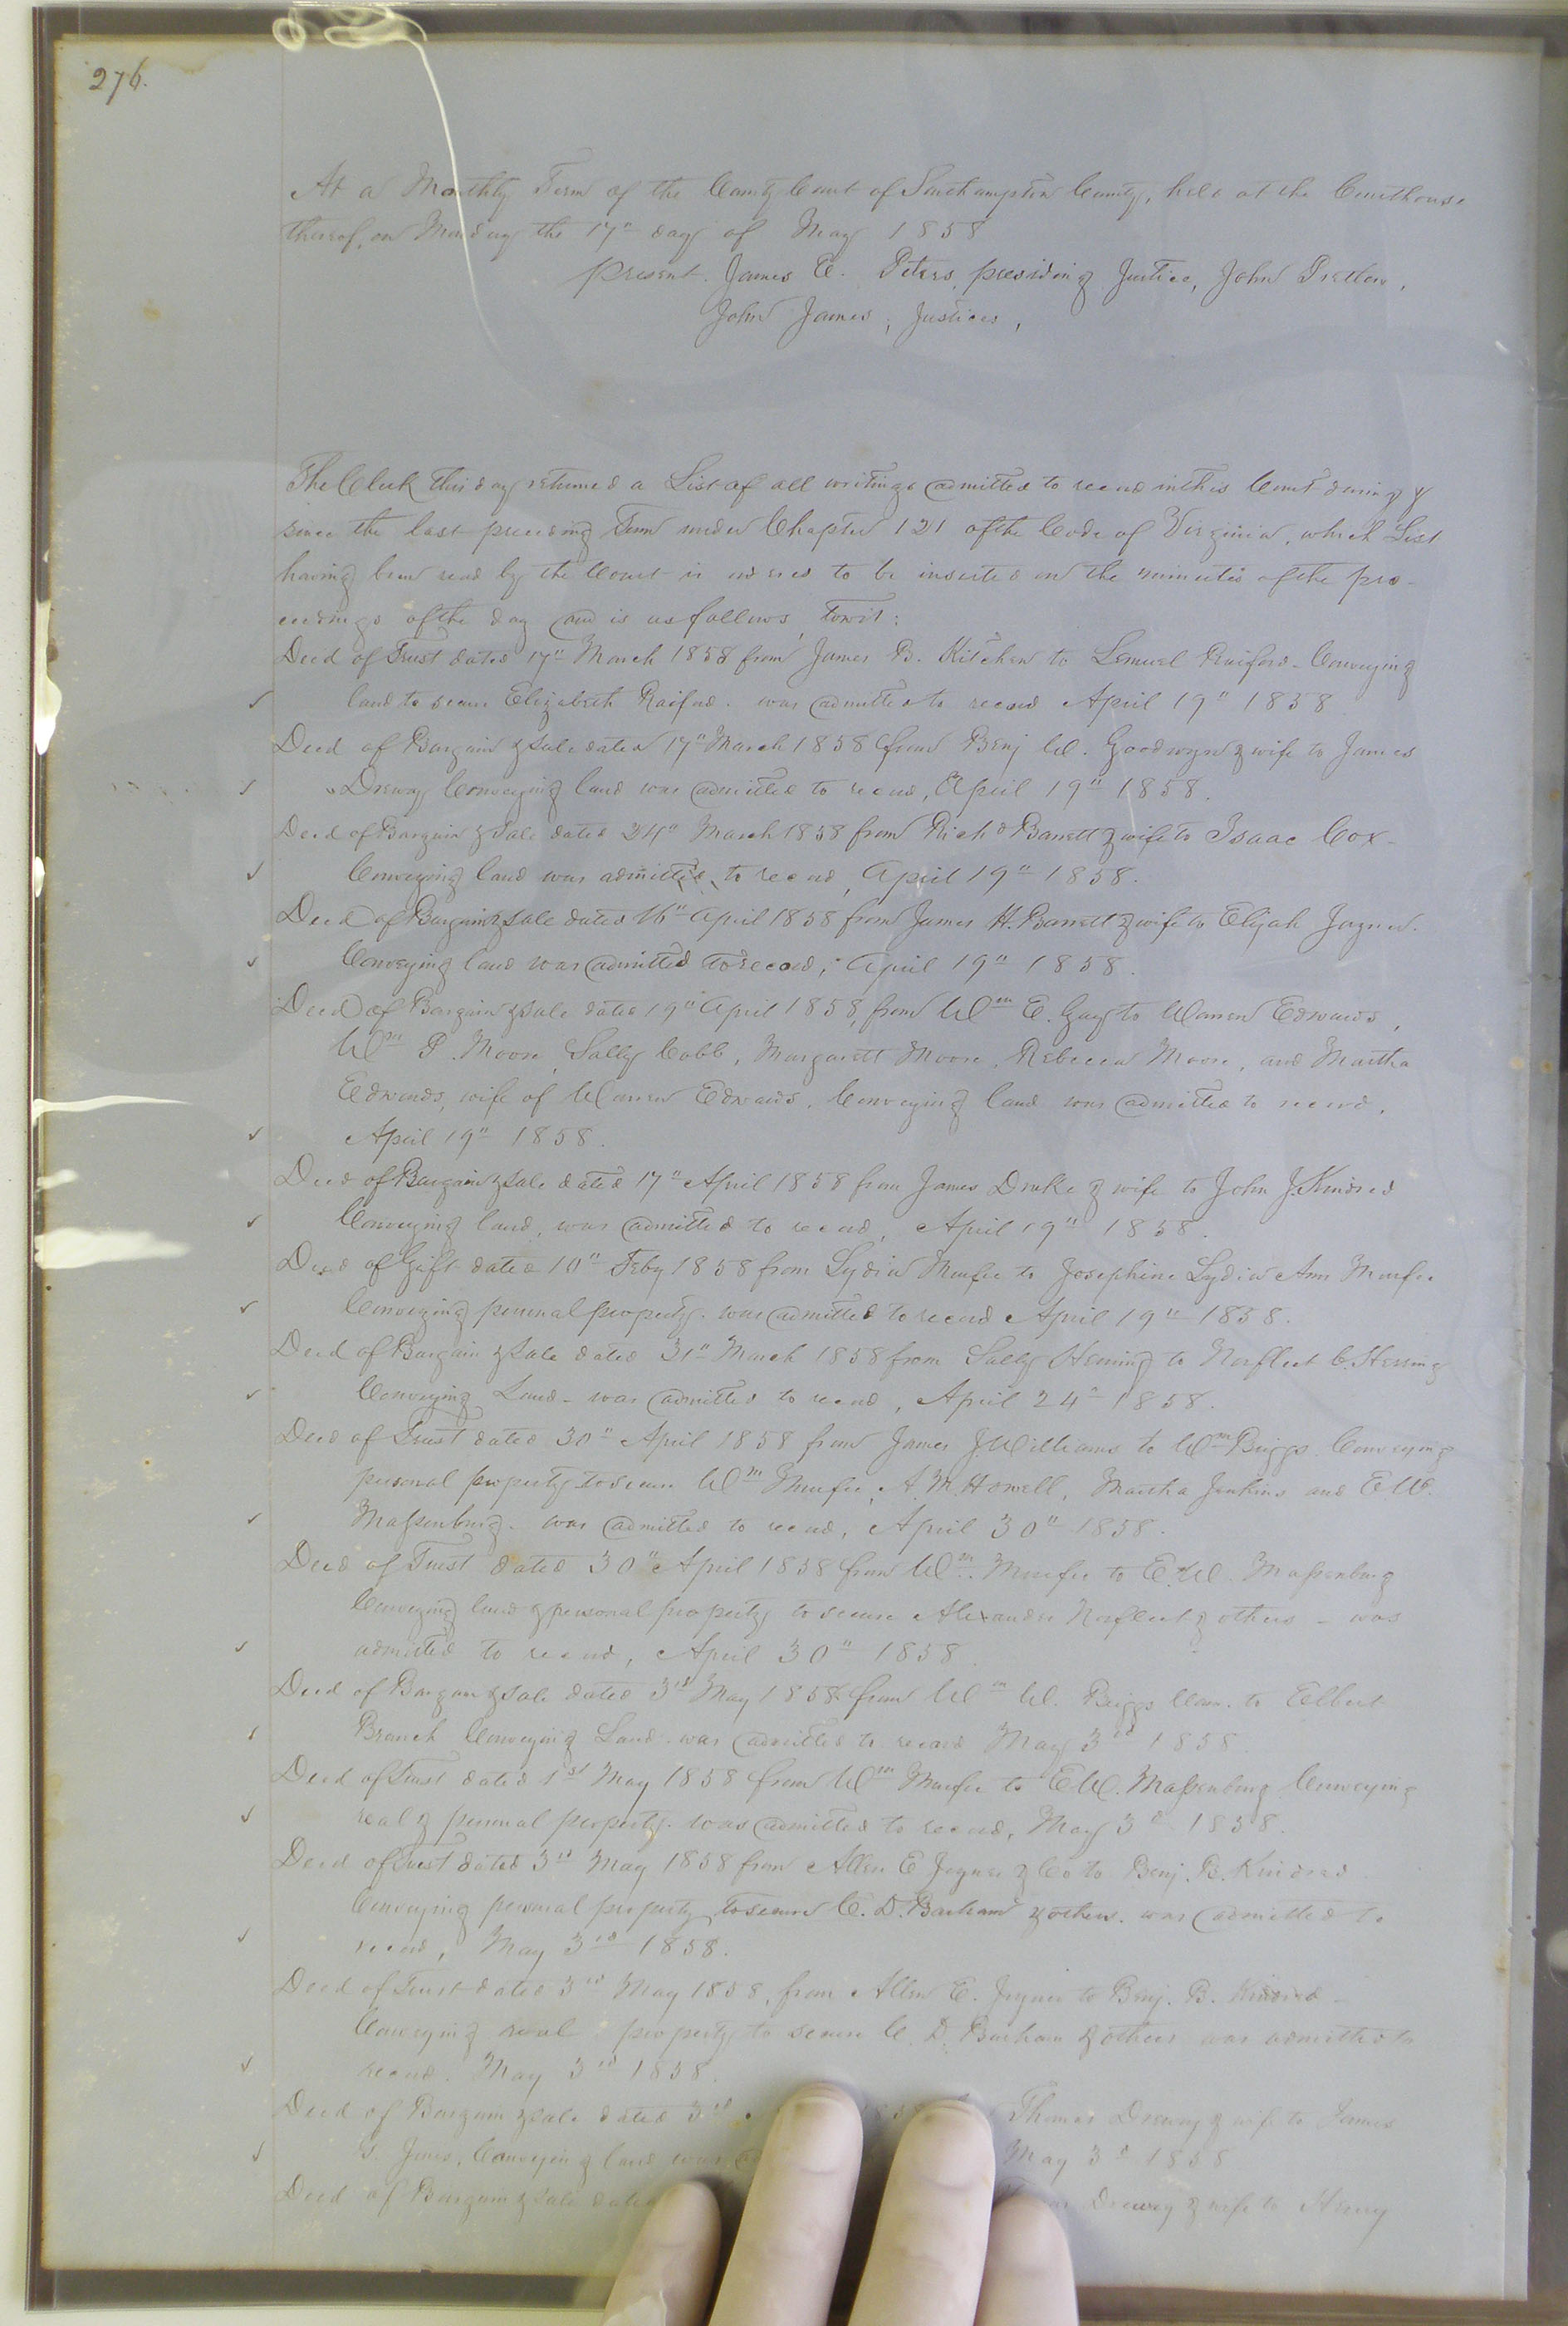 276.
At a Monthly Term of the County Court of Southampton County, held at the Courthouse
thereof, on Monday the 17" day of May 1858
present. James E. Peters, presiding Justice, John Pretlow,
John James, Justices,
The Clerk this day returned a List of all writings admitted to record in this Court during &
since the last preceding Term under Chapter 121 of the Code of Virginia, which List
having been read by the Court is ordered to be inserted in the minutes of the pro-
ceedings of the day and is as follows, towit:
Deed of Trust dated 17" March 1858 from James B. Kitchen to Lemuel Raiford - Conveying
✓ land to secure Elizabeth Raiford. was admitted to record April 19" 1858
Deed of Bargain & Sale dated 17" March 1858 from Benj W. Goodwyn & wife to James
✓ Drewry Conveying land was admitted to record, April 19" 1858.
Deed of Bargain & Sale dated 24" March 1858 from Richd Barrett & wife to Isaac Cox -
✓ Conveying land was admitted to record, April 19" 1858.
Deed of Bargain & Sale dated 16" April 1858 from James H. Barrett & wife to Elijah Joyner.
✓ Conveying land was admitted to record, April 19" 1858.
Deed of Bargain & Sale dated 19" April 1858, from Wm E. Gay to Warren Edwards,
Wm P. Moore, Sally Cobb, Margarett Moore, Rebecca Moore, and Martha
Edwards, wife of Warren Edwards. Conveying land was admitted to record,
✓ April 19" 1858.
Deed of Bargain & Sale dated 17" April 1858 from James Drake & wife to John J. Kindred
✓ Conveying land, was admitted to record, April 19" 1858.
Deed of Gift dated 10" Feby 1858 from Lydia Murfee to Josephine Lydia Ann Murfee
✓ Conveying personal property. was admitted to record April 19" 1858.
Deed of Bargain & Sale dated 31" March 1858 from Sally Herring to Norfleet C. Herring
✓ Conveying Land - was admitted to record, April 24" 1858.
Deed of Trust dated 30" April 1858 from James J. Williams to Wm Briggs Conveying
personal property to secure Wm Murfee, A. M. Howell, Martha Jenkins and E W.
✓ Massenburg. was admitted to record, April 30" 1858.
Deed of Trust dated 30" April 1858 from Wm. Murfee to E. W. Massenburg
Conveying land & personal property to secure Alexander Norfleet & others - was
✓ admitted to record, April 30" 1858
Deed of Bargain & Sale dated 3rd May 1858 from Wm W. Briggs to Elbert
✓ Branch Conveying Land. was admitted to record May 3rd 1858
Deed of Trust dated 1st May 1858 from Wm Murfee to E W. Massenburg Conveying
✓ real & personal property. was admitted to record, May 3d 1858.
Deed of Trust dated 3rd May 1858 from Allen E Joyner & Co to Benj. B. Kindred
Conveying personal property to secure C. D. Barham & others. was admitted to
✓ record, May 3rd 1858.
Deed of Trust dated 3rd May 1858, from Allen E. Joyner to Benj. B. Kindred -
Conveying real property to secure C. D. Barham & others was admitted to
✓ record. May 3rd 1858.
Deed of Bargain & Sale dated 3rd Thomas Drewry & wife to James
✓ G. Jones, Conveying land was May 3d 1858
Deed of Bargain & Sale dated Drewry & wife to Henry